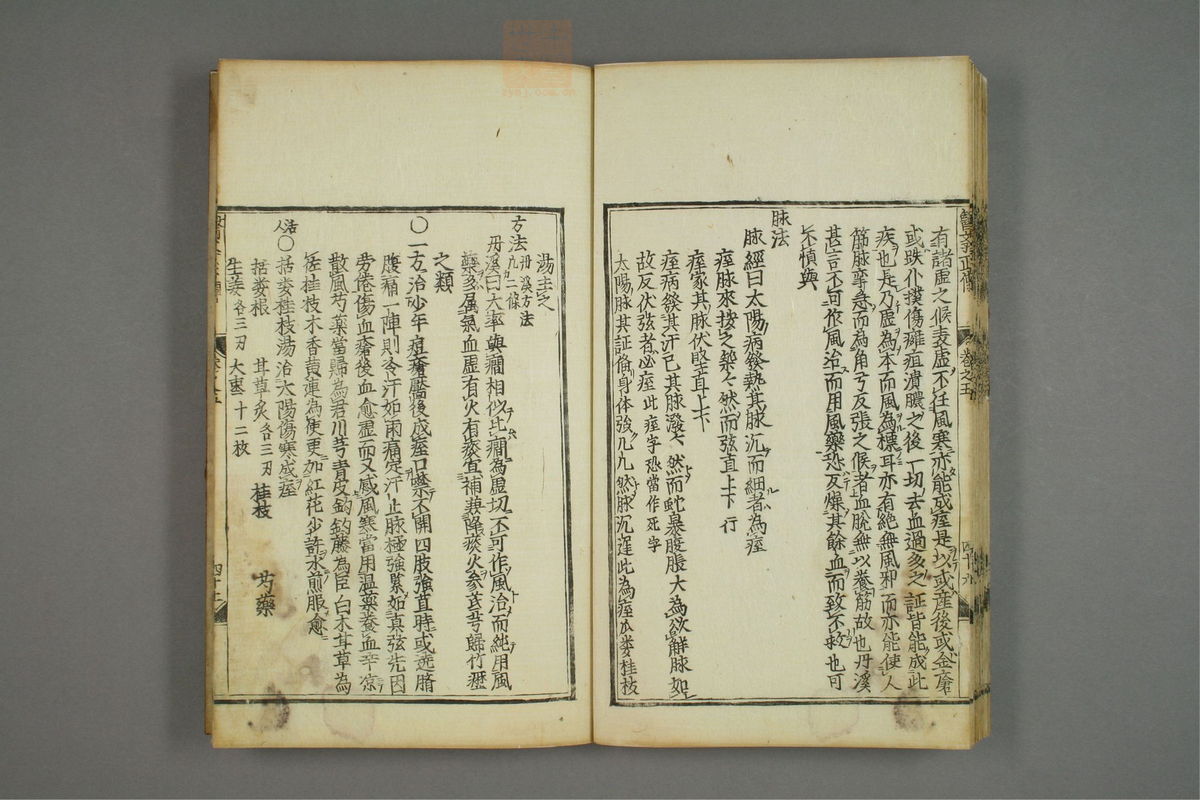 有諸虛之候表虛不任風寒亦能成痓是以或産後或金瘡
或跌仆撲傷癰疽潰膿之後一切去血過多之証皆能成此
疾也是乃虛為本而風為標耳亦有絶無風邪而亦能使人
筋脉攣急而為角弓反張之候者血脫無以養筋故也丹溪
甚言不可作風治而用風藥恐反燥其餘血而致不救也可
不慎與
脉法
脉經曰太陽病發熱其脉沉而細者為痓
痓脉來按之築々然而弦直上下行
痓家其脉伏堅直上下
痓病發其汗已其脉澁々然而蛇暴腹脹大為欲解脉如
故反伏弦者必痓此痓字恐當作死字
太陽脉其証俻身体強几几然脉沉遲此為痓瓜蔞桂枝
湯主之
方法丹溪方法凡二條
丹溪曰大率與癎相似比癎為虛切不可作風治而純用風
藥多属氣血虛有火有痰宜補兼降痰火參芪芎歸竹瀝
之類
〇一方治少年痘瘡靨後成痓口噤不開四肢強直時或遶臍
腹痛一陣則冷汗如雨痛定汗止脉極強緊如真弦先因
勞倦傷血瘡後血愈虛而又感風寒當用温藥養血辛凉
散風芍藥當歸為君川芎青皮鈎藤為臣白朮甘草為
佐桂枝木香黄連為使更加紅花少許水煎服愈
活人〇括蔞桂枝湯治太陽傷寒成痓
括蔞根 甘草炙各三刄 桂枝 芍藥
生姜各三刄 大棗十二枚
卷之五
四十九